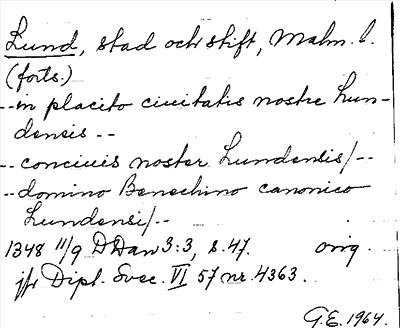 Lund, stad och stift, Malm. l.
(forts.)
--in placito ciuitatis nostre Lun-
densis --
--conciuis noster Lundensis/--
--domino Benechino canonico
Lundensi/--
1348 11/9 DDan 3:3, s. 47. orig.
jfr Dipl. Svec. VI 57 nr. 4363.
G.E. 1964.